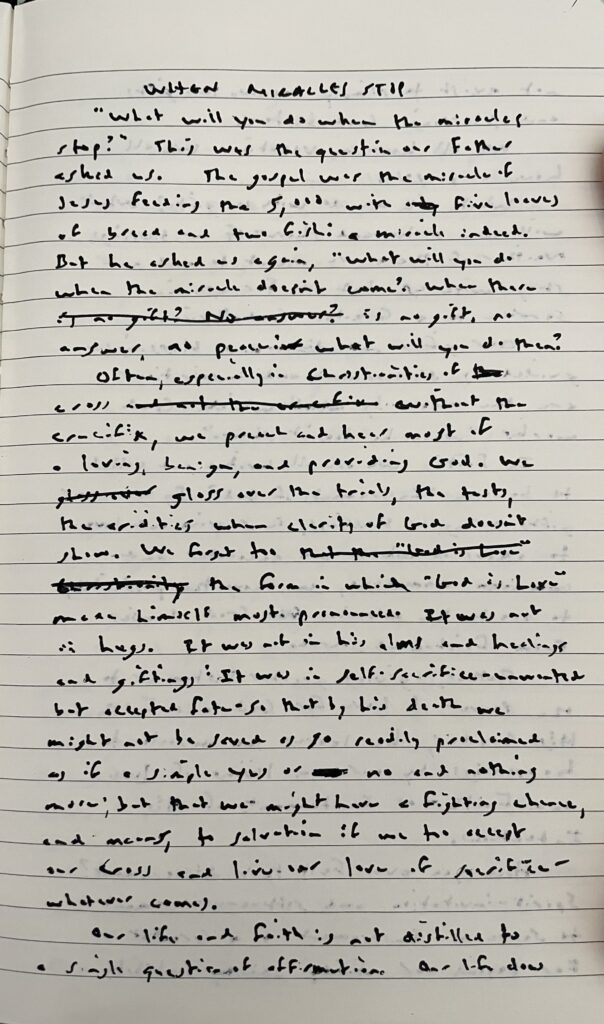 WHEN MIRACLES STOP
"What will you do when the miracles
stop?" This was the question our Father
asked us. The gospel was the miracle of
Jesus feeding the 5,000 with only five loaves
of bread and two fish: a miracle indeed.
But he asked us again, "What will you do
when the miracle doesn't come? When there
is no gift? No answer? is no gift, no
answer, no what will you do then?
Often, especially in Christianities of the
cross and not the crucifix without the
crucifix, we preach and hear most of
a loving, benign, and providing God. We
gloss over gloss over the trials, the tests,
the aridities when clarity of God doesn't
show. We forget too that the "God is Love"
Christianity the form in which "God is Love"
made himself most pronounced. It was not
in hugs. It was not in his alms and healings
and giftings: It was in self-sacrifice-unwanted
but accepted fate-so that by his death we
might not be saved as so readily proclaimed
as if a simple yes or no and nothing
more; but that we might have a fighting chance,
and means, to salvation if we too accept
our Cross and live our love of sacrifice-
whatever comes.
Our life and faith is not distilled to
a single question of affirmation. Our life does